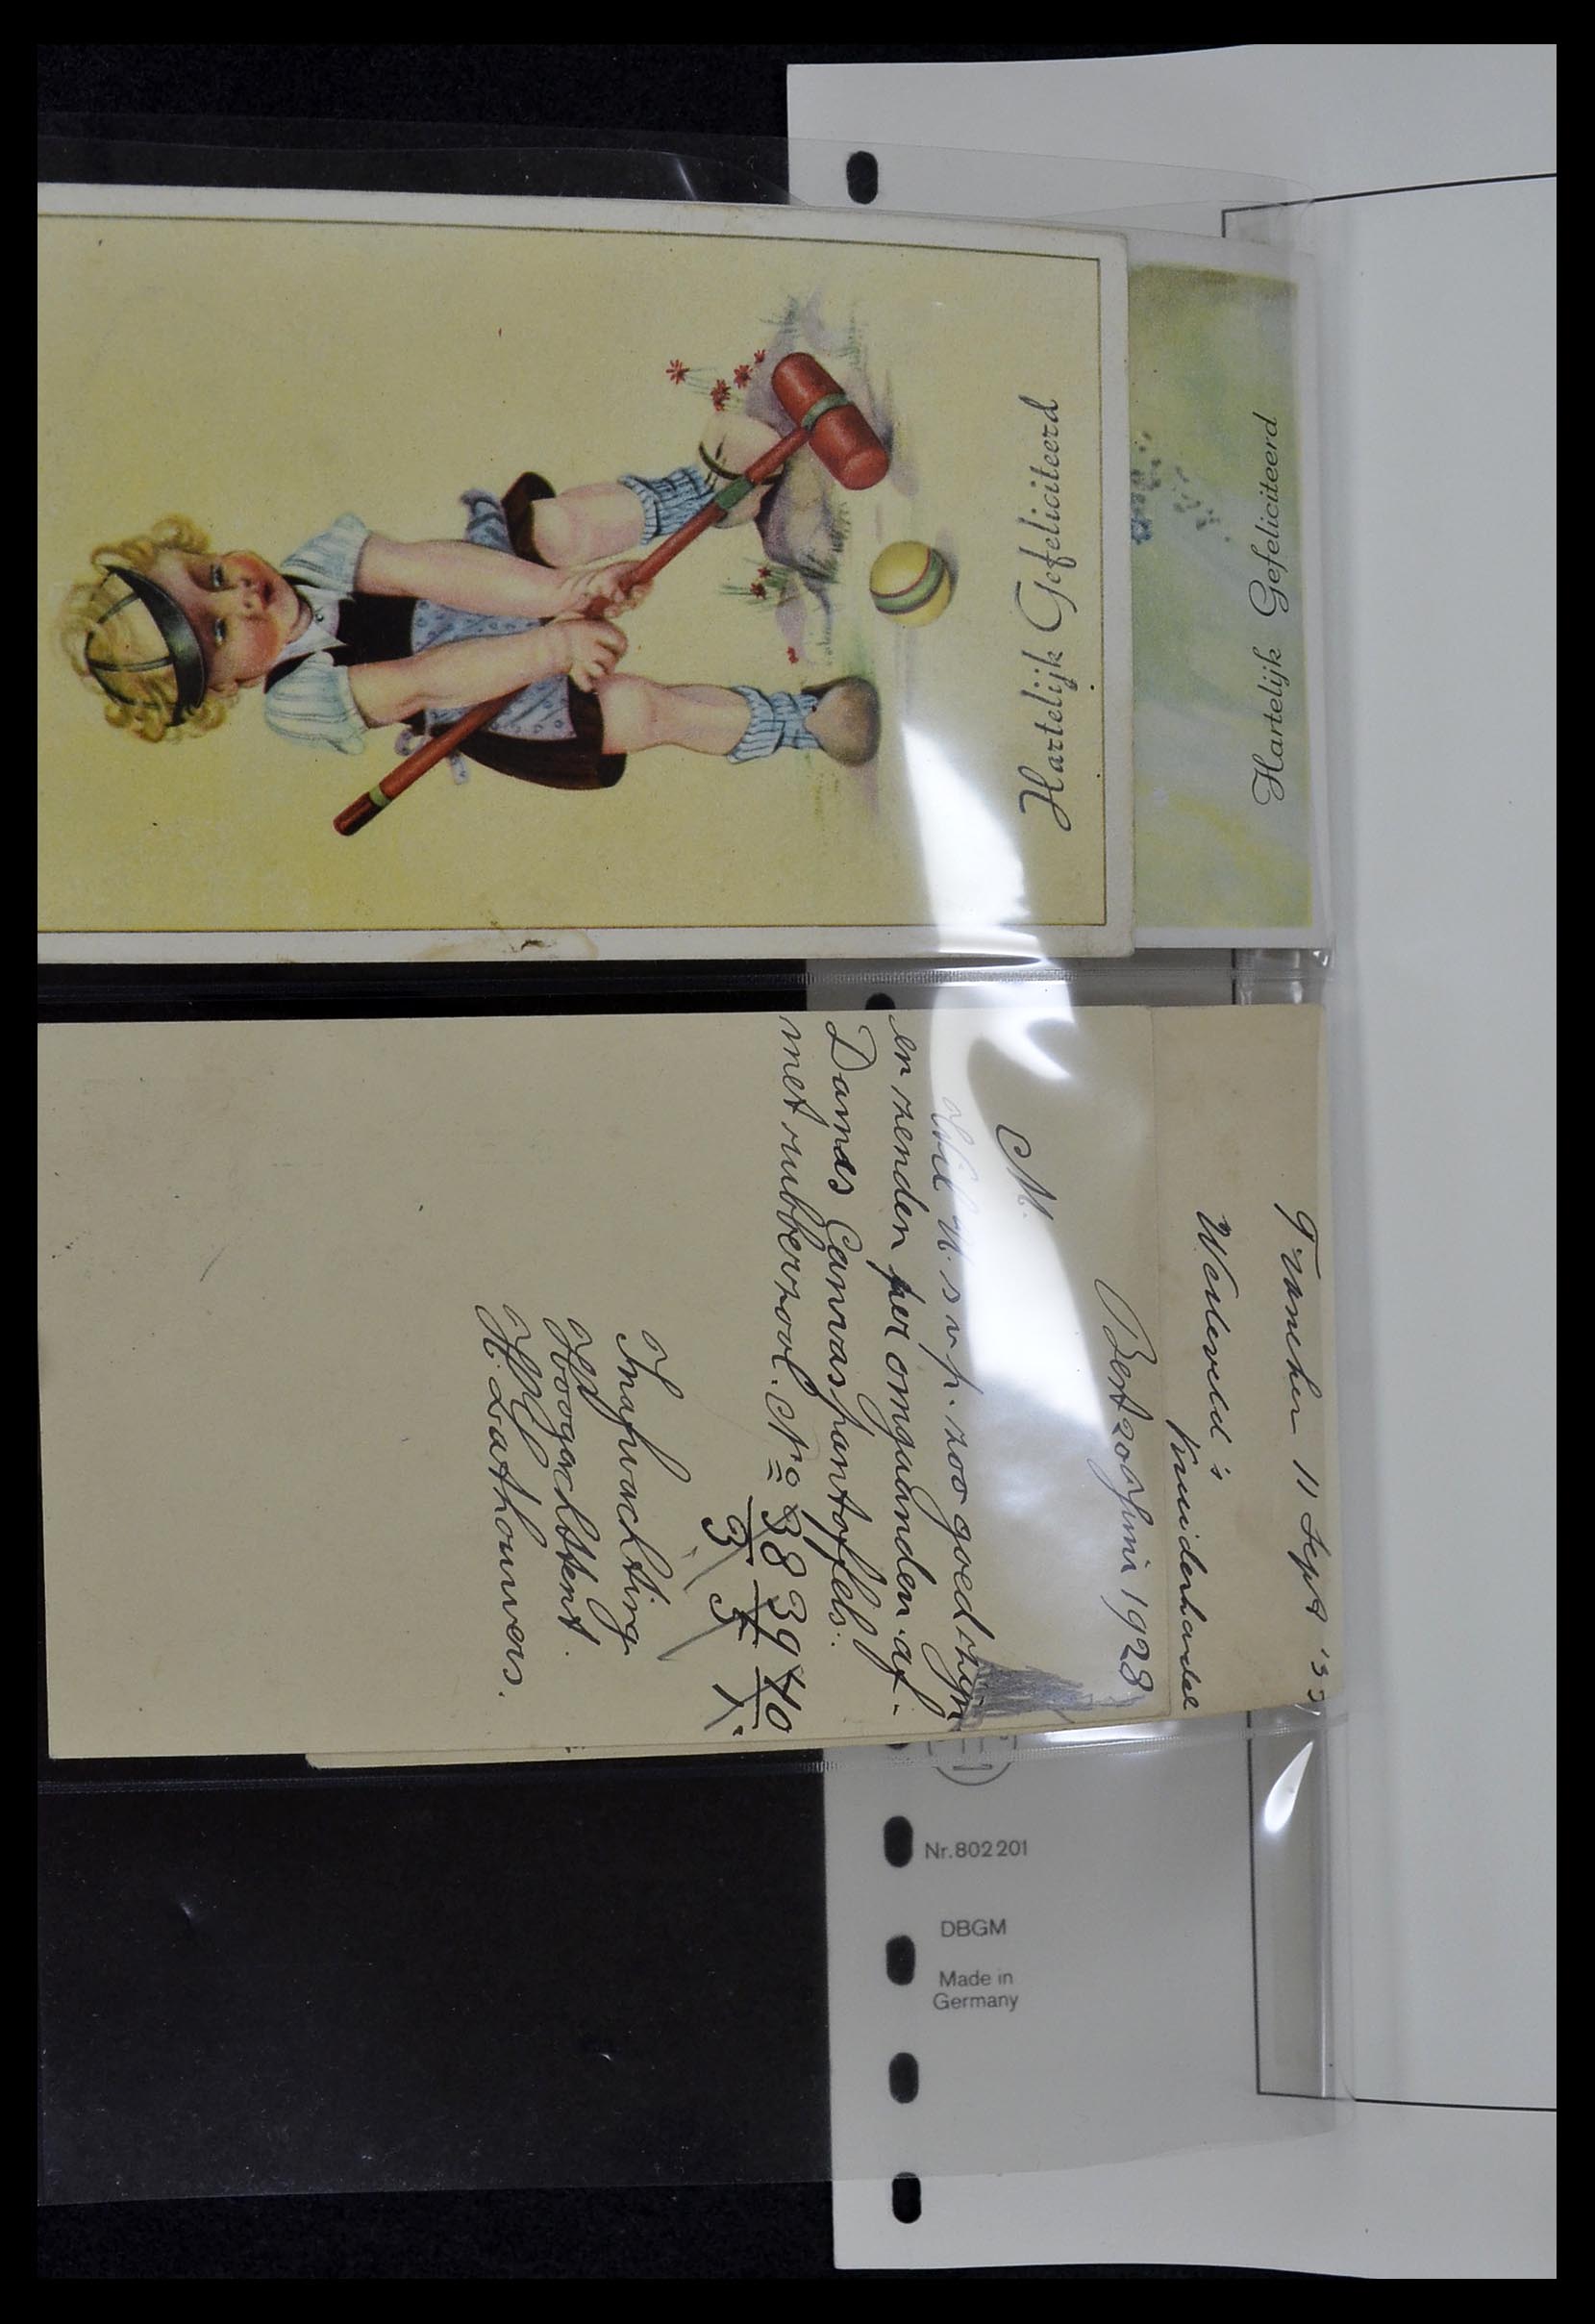 Hartelijk Gefeliciteerd
Hartelijk Gefeliciteerd
Franeker 11 Sept '33
Werleveld's
Kruidenhandel
Best 20 Juni 1928
M.
Wil U. s v p. zoo goed zijn
en zenden per omgaanden af.
Dames Canvas pantoffels.
met rubberzool. No 38 39 40
3 3 1
Inafwachting
Hoogachttent.
H. Lathouwers.
Nr. 802 201
DBGM
Made in
Germany